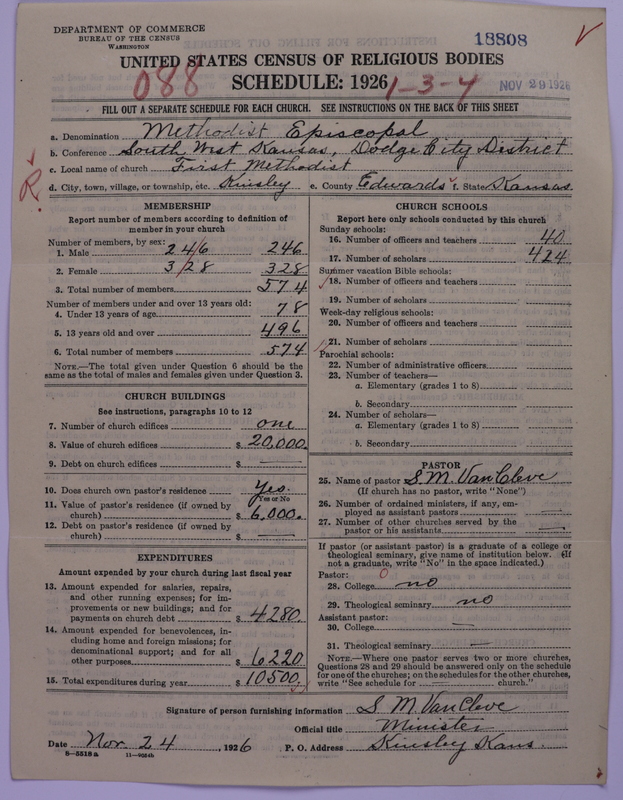 DEPARTMENT OF COMMERCE
BUREAU OF THE CENSUS
WASHINGTON
18808
UNITED STATES CENSUS OF RELIGIOUS BODIES
088
SCHEDULE: 1926
1-3-4
NOV 29 1926
FILL OUT A SEPARATE SCHEDULE FOR EACH CHURCH. SEE INSTRUCTIONS ON THE BACK OF THIS SHEET
a. Denomination Methodist Episcopal
b. Conference South West Kansas, Dodge City District
c. Local name of church First Methodist
d. City, town, village, or township, etc. Kinsley e. County Edwards f. State Kansas.
R.
MEMBERSHIP
Report number of members according to definition of member in your church
Number of members, by sex:
1. Male 246 246
2. Female 328 328
3. Total number of members 574
Number of members under and over 13 years old:
4. Under 13 years of age 78
5. 13 years old and over 496
6. Total number of members 574
NOTE.—The total given under Question 6 should be
same as the total of males and females given under Question 3.
CHURCH BUILDINGS
See instructions, paragraphs 10 to 12
7. Number of church edifices one
8. Value of church edifices $ 20,000.
9. Debt on church edifices $ —
10. Does church own pastor's residence Yes.
Yes or No
11. Value of pastor's residence (if owned by
church) $ 6,000.
12. Debt on pastor's residence (if owned by
church) $ —
EXPENDITURES
Amount expended by your church during last fiscal year
13. Amount expended for salaries, repairs,
and other running expenses; for im-
provements or new buildings; and for
payments on church debt $ 4280.
14. Amount expended for benevolences, in-
cluding home and foreign missions; for
denominational support; and for all
other purposes $ 6220
15. Total expenditures during year $ 10500.
CHURCH SCHOOLS
Report here only schools conducted by this church
Sunday schools:
16. Number of officers and teachers 40
17. Number of scholars 424
Summer vacation Bible schools:
18. Number of officers and teachers
19. Number of scholars
Week-day religious schools:
20. Number of officers and teachers
21. Number of scholars
Parochial schools:
22. Number of administrative officers
23. Number of teachers—
a. Elementary (grades 1 to 8)
b. Secondary
24. Number of scholars—
a. Elementary (grades 1 to 8)
b. Secondary
PASTOR
25. Name of pastor S. M. Van Cleve
(If church has no pastor, write "None")
26. Number of ordained ministers, if any, em-
ployed as assistant pastors —
27. Number of other churches served by the
pastor or his assistants —
If pastor (or assistant pastor) is a graduate of a college or
theological seminary, give name of institution below. (If
not a graduate, write "No" in the space indicated.)
Pastor: 0
28. College no
29. Theological seminary no
Assistant pastor:
30. College —
31. Theological seminary —
NOTE.—Where one pastor serves two or more churches,
Questions 28 and 29 should be answered only on the schedule
for one of the churches; on the schedules for the other churches,
write "See schedule for — church."
Signature of person furnishing information S. M. Van Cleve
Official title Minister
Date Nov. 24, 1926 P. O. Address Kinsley Kans.
8-5518a